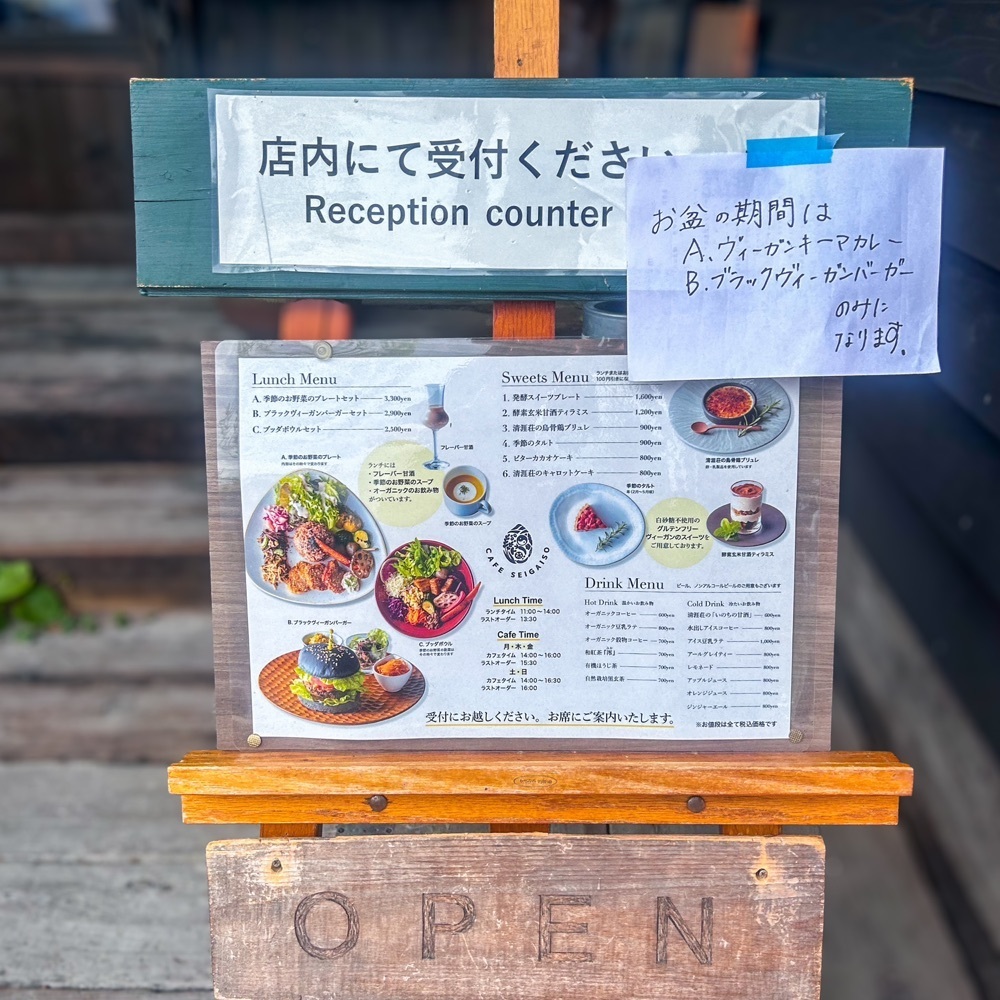 店内にて受付ください
Reception counter
お盆の期間は
A. ヴィーガンキーマカレー
B. ブラックヴィーガンバーガー
のみに
なります。
Lunch Menu
A. 季節のお野菜のプレートセット 3,300yen
B. ブラックヴィーガンバーガーセット 2,900yen
C. ブッダボウルセット 2,500yen
フレーバー甘酒
A. 季節のお野菜のプレート
ランチには
・フレーバー甘酒
・季節のお野菜のスープ
・オーガニックのお飲み物
がついています。
季節のお野菜のスープ
B. ブラックヴィーガンバーガー
C. ブッダボウル
CAFE SEIGAISO
Lunch Time
ランチタイム 11:00〜14:00
ラストオーダー 13:30
Cafe Time
月・木・金
カフェタイム 14:00〜16:00
ラストオーダー 15:30
土・日
カフェタイム 14:00〜16:30
ラストオーダー 16:00
Sweets Menu
1. 発酵スイーツプレート 1,600yen
2. 酵素玄米甘酒ティラミス 1,200yen
3. 清涯荘の烏骨鶏ブリュレ 900yen
4. 季節のタルト 900yen
5. ビターカカオケーキ 800yen
6. 清涯荘のキャロットケーキ 800yen
清涯荘の烏骨鶏ブリュレ
季節のタルト
白砂糖不使用の
グルテンフリー
ヴィーガンのスイーツを
ご用意しております。
酵素玄米甘酒ティラミス
Drink Menu ビール、ノンアルコールビールのご用意もございます
Hot Drink 温かいお飲み物
オーガニックコーヒー 600yen
オーガニック豆乳ラテ 800yen
オーガニック穀物コーヒー 700yen
和紅茶 700yen
有機ほうじ茶 700yen
自然栽培黒玄茶 700yen
Cold Drink 冷たいお飲み物
清涯荘の「いのちの甘酒」 600yen
水出しアイスコーヒー 800yen
アイス豆乳ラテ 1,000yen
アールグレイティー 800yen
レモネード 800yen
アップルジュース 800yen
オレンジジュース 800yen
ジンジャーエール 800yen
受付にお越しください。お席にご案内いたします。
※お値段は全て税込価格です
OPEN